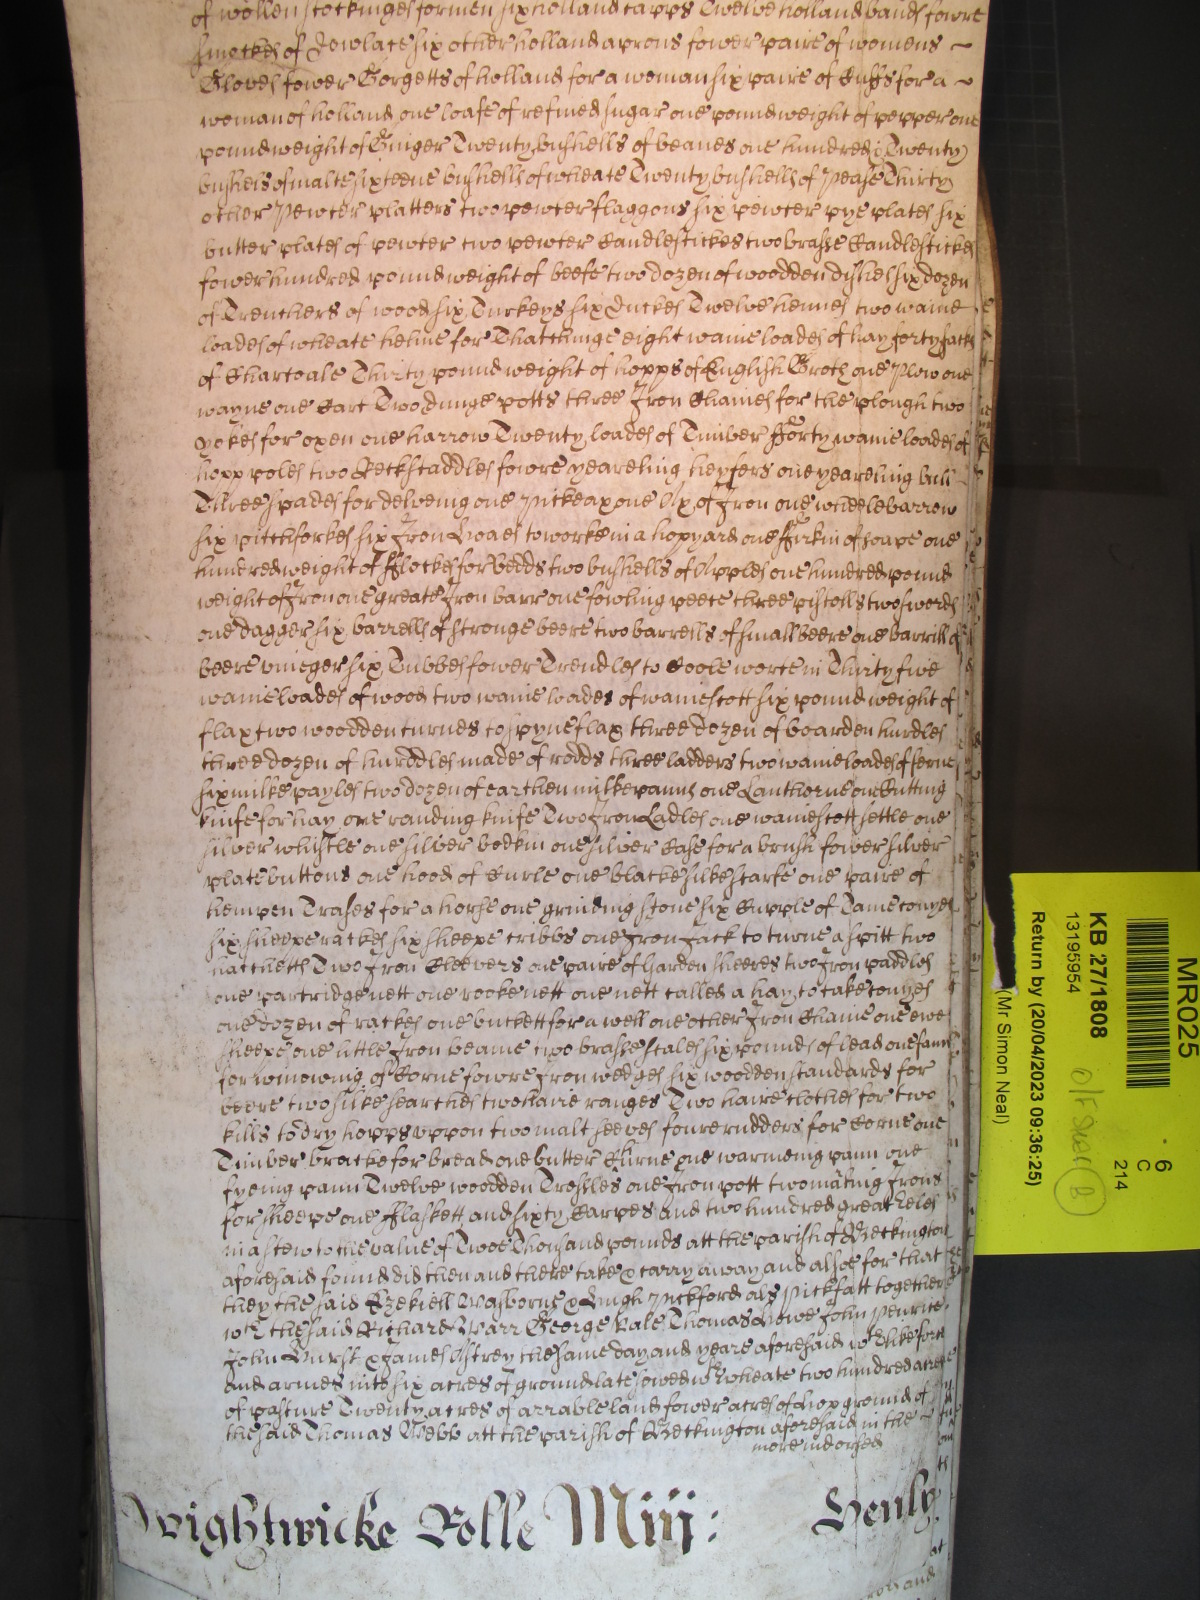 of wollen stockinges for men six holland capps Twelve holland bands fowre
smockes of Lowlace six other holland aprons fower paire of womens
Gloves fower Gorgetts of holland for a woman six paire of Cuffs for a
woman of holland one loafe of refined sugar one pound weight of pepper one
pound weight of Ginger Twenty bushells of beanes one hundred & Twenty
bushels of malte sixteene bushells of wheate Twenty bushells of Pease Thirty
other Pewter platters two pewter flaggons six pewter pye plates six
butter plates of pewter two pewter Candlestickes two brasse Candlestickes
fower hundred pound weight of beefe two dozen of woodden dishes six dozen
of Trenchers of wood six Turkeys six Duckes Twelve hennes two waine
loades of wheate helme for Thatchinge eight waine loades of hay forty sacks
of Charcoale Thirty pound weight of hopps of English Groth one Plow one
wayne one Cart Two dunge potts three Iron Chaines for the plough two
yokes for oxen one harrow Twenty loades of Timber fforty waine loades of
hopp poles two Reckstaddles fowre yeareling heyfers one yeareling bull
Three spades for delveing one Pickeax one Ax of Iron one wheelebarrow
six pitchforkes six Iron Hoaes to worke in a hopyard one ffirkin of soape one
hundred weight of fflockes for bedds two bushells of Apples one hundred pound
weight of Iron one greate Iron barr one fowling peece three pistolls two swords
one dagger six barrells of stronge beere two barrells of small beere one barrill of
beere vineger six Tubbes fower Trendles to Coole worte in Thirty five
waine loades of wood two waine loades of wainescott six pound weight of
flax two woodden turnes to spyne flax three dozen of boarden hurdles
three dozen of hurddles made of rodds three ladders two waine loades of ferne
six milke payles two dozen of earthen milke panns one Lanthorne one Cutting
knife for hay one randing knife Two Iron Ladles one wainescott settle one
silver whistle one silver bodkin one silver Case for a brush fower silver
plate buttons one hood of Curle one blacke silke scarfe one paire of
hempen Trases for a horse one grinding stone six Cupple of Tame conyes
six sheepe rackes six sheepe cribbs one Iron Jack to turne a spitt two
hatchetts Two Iron Cleevers one paire of Garden sheeres two Iron paddles
one partridge nett one rooke nett one nett called a hay to take conyes
one dozen of rackes one buckett for a well one other Iron Chaine one ewe
sheepe one little Iron beame two brasse scales six pounds of lead one fann
for winowing of Corne fowre Iron wedges six woodden standards for
beere two silke searches two haire ranges Two haire clothes for two
kills to dry hopps uppon two malt seeves fower rudders for Corne one
Timber bracke for bread one butter Churne one warmeing pann one
fryeing pann Twelve woodden Tressles one Iron pott two marking Irons
for sheepe one fflaskett and sixty Carpes and two hundred great Eeles
in a stew to the value of Twoe Thousand pounds att the parish of Beckington
aforesaid found did then and there take & carry away and alsoe for that
they the said Ezekiell Wasborne & Hugh Pickford als Pickfatt together
wth the said Richard Warr George Vale Thomas Howe John Penrice
John Hurst & James Astrey the same day and yeare aforesaid wth like force
and armes into six acres of ground late sowed wth wheate two hundred acres
of pasture Twenty acres of arrable land fower acres of hop ground of
the said Thomas Webb att the parish of Beckington aforesaid in the
more indorsed
Wightwicke Rolle Miiij: Henly
MR025
6
C
214
KB 27/1808
13195954
Return by (20/04/2023 09:36:25)
(Mr Simon Neal)